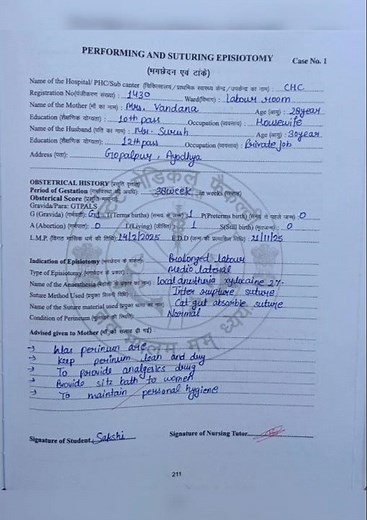 PERFORMING AND SUTURING EPISIOTOMY
Case No. 1
(भगछेदन एवं टांके)
Name of the Hospital/ PHC/Sub canter (चिकित्सालय/प्राथमिक स्वास्थ्य केन्द्र/उपकेन्द्र का नाम) : CHC
Registration No(पंजीकरण संख्या) : 1430 Ward(विभाग) : labour room
Name of the Mother (माँ का नाम) : Mrs. Vandana Age (आयु) : 28year
Education (शैक्षणिक योग्यता) : 10th pass Occupation (व्यवसाय) : Housewife
Name of the Husband (पति का नाम) : Mr. Suresh Age (आयु) : 30year
Education (शैक्षणिक योग्यता) : 12th pass Occupation (व्यवसाय) : Private Job
Address (पता) : Gopalpur, Ayodhya
OBSTETRICAL HISTORY (प्रसूति वृतांत)
Period of Gestation (गर्भावस्था की अवधि) 38week in weeks (सप्ताह)
Obsterical Score
Gravida/Para: GTPALS
G (Gravida) (गर्भवती) G1 T(Term births) 1 P(Preterms births) 0
A (Abortion) 0 L(Living) 1 S(Still birth) 0
L.M.P. 14/2/2025 E.D.D 21/11/25
Indication of Episiotomy Prolonged labour
Type of Episiotomy medio lateral
Name of the Anaesthesia local anesthesia xylocaine 2%
Suture Method Used suture
Name of the Suture material used Cat gut absorble suture
Condition of Perineum Normal
Advised given to Mother (माँ को सलाह दी गई) :
→ Wash perinium
→ Keep perinium clean and dry
→ To provide analgesics drug
→ Provide sitz bath to women
→ To maintain personal hygiene
Signature of Student Sakshi Signature of Nursing Tutor
211